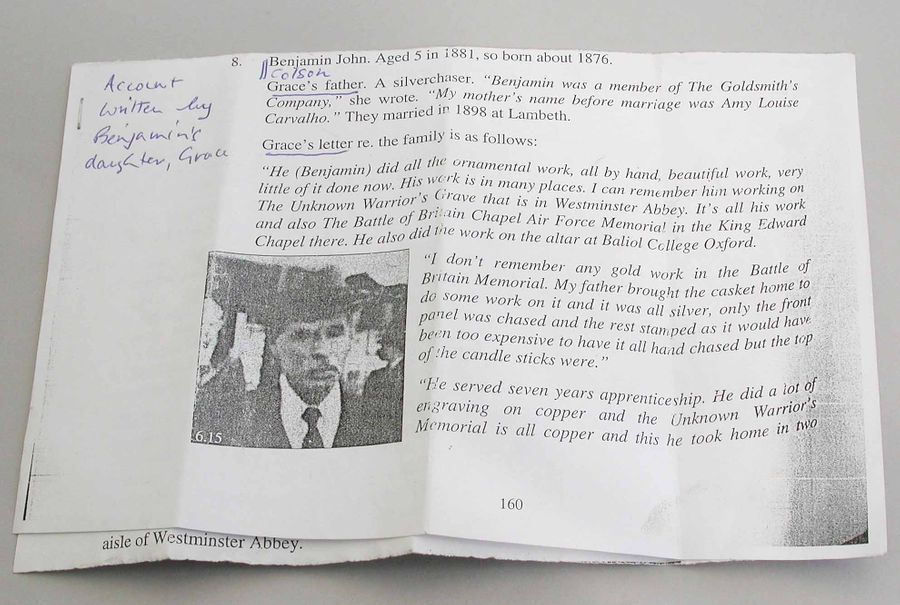 Account
written by
Benjamin's
daughter, Grace
8. Benjamin John. Aged 5 in 1881, so born about 1876.
Colson
Grace's father. A silverchaser. "Benjamin was a member of The Goldsmith's
Company," she wrote. "My mother's name before marriage was Amy Louise
Carvalho." They married in 1898 at Lambeth.
Grace's letter re. the family is as follows:
"He (Benjamin) did all the ornamental work, all by hand, beautiful work, very
little of it done now. His work is in many places. I can remember him working on
The Unknown Warrior's Grave that is in Westminster Abbey. It's all his work
and also The Battle of Britain Chapel Air Force Memorial in the King Edward
Chapel there. He also did the work on the altar at Baliol College Oxford.
"I don't remember any gold work in the Battle of
Britain Memorial. My father brought the casket home to
do some work on it and it was all silver, only the front
panel was chased and the rest stamped as it would have
been too expensive to have it all hand chased but the top
of the candle sticks were."
"He served seven years apprenticeship. He did a lot of
engraving on copper and the Unknown Warrior's
Memorial is all copper and this he took home in two
6.15
160
aisle of Westminster Abbey.